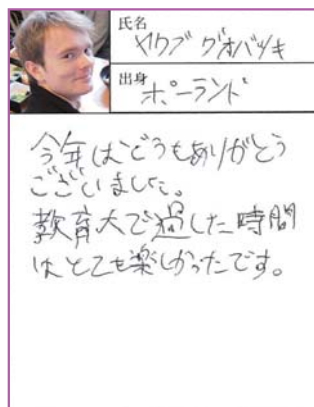 氏名
ヤクブ グオバツキ
出身
ポーランド
今年はどうもありがとう
ございました。
教育大で過した時間
はとても楽しかったです。